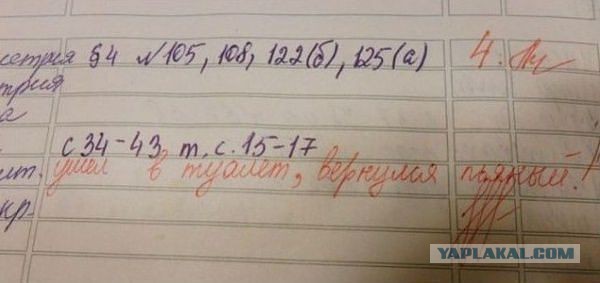 етрия §4 №105, 108, 122(б), 125(а) 4.
трия
а
с 34-43, т. с. 15-17
ит. ушел в туалет, вернулся пьяный!
кр-
YAPLAKAL.COM